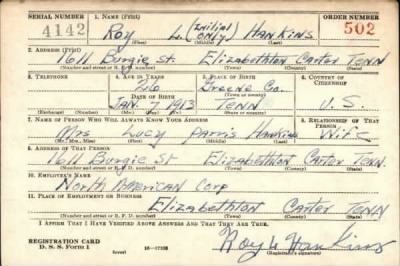 SERIAL NUMBER 1. NAME (Print) ORDER NUMBER
4142 Roy L. (initial only) Hankins 502
(First) (Middle) (Last)
2. ADDRESS (Print)
1611 Burgie St. Elizabethton Carter Tenn
(Number and street or R. F. D. number) (Town) (County) (State)
3. TELEPHONE 4. AGE IN YEARS 5. PLACE OF BIRTH 6. COUNTRY OF CITIZENSHIP
26 Greene Co.
DATE OF BIRTH (Town or county)
Jan. 7 1913 Tenn U.S.
(Exchange) (Number) (Mo.) (Day) (Yr.) (State or country)
7. NAME OF PERSON WHO WILL ALWAYS KNOW YOUR ADDRESS 8. RELATIONSHIP OF THAT PERSON
Mrs Lucy Parris Hankins Wife
(Mr., Mrs., Miss) (First) (Middle) (Last)
9. ADDRESS OF THAT PERSON
1611 Burgie St Elizabethton Carter Tenn.
(Number and street or R. F. D. number) (Town) (County) (State)
10. EMPLOYER'S NAME
North American Corp
11. PLACE OF EMPLOYMENT OR BUSINESS
Elizabethton Carter Tenn
(Number and street or R. F. D. number) (Town) (County) (State)
I AFFIRM THAT I HAVE VERIFIED ABOVE ANSWERS AND THAT THEY ARE TRUE.
REGISTRATION CARD
D. S. S. Form 1 (over) 16—17105 Roy L Hankins
(Registrant's signature)